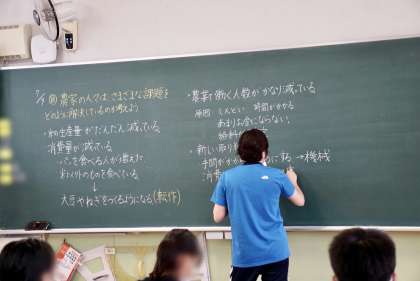 7/5 農家の人々は、さまざまな課題を
どのように解決しているのか考えよう
・米の生産量がだんだん減っている
消費量が減っている
パンを食べる人が増えた
米以外のものを食べている
↓
大豆やねぎをつくるようになる(転作)
・農業で働く人数がかなり減っている
原因 しんどい 時間がかかる
あまりお金にならない
給料
・新しい取り
手間がかか にする →機械
消費